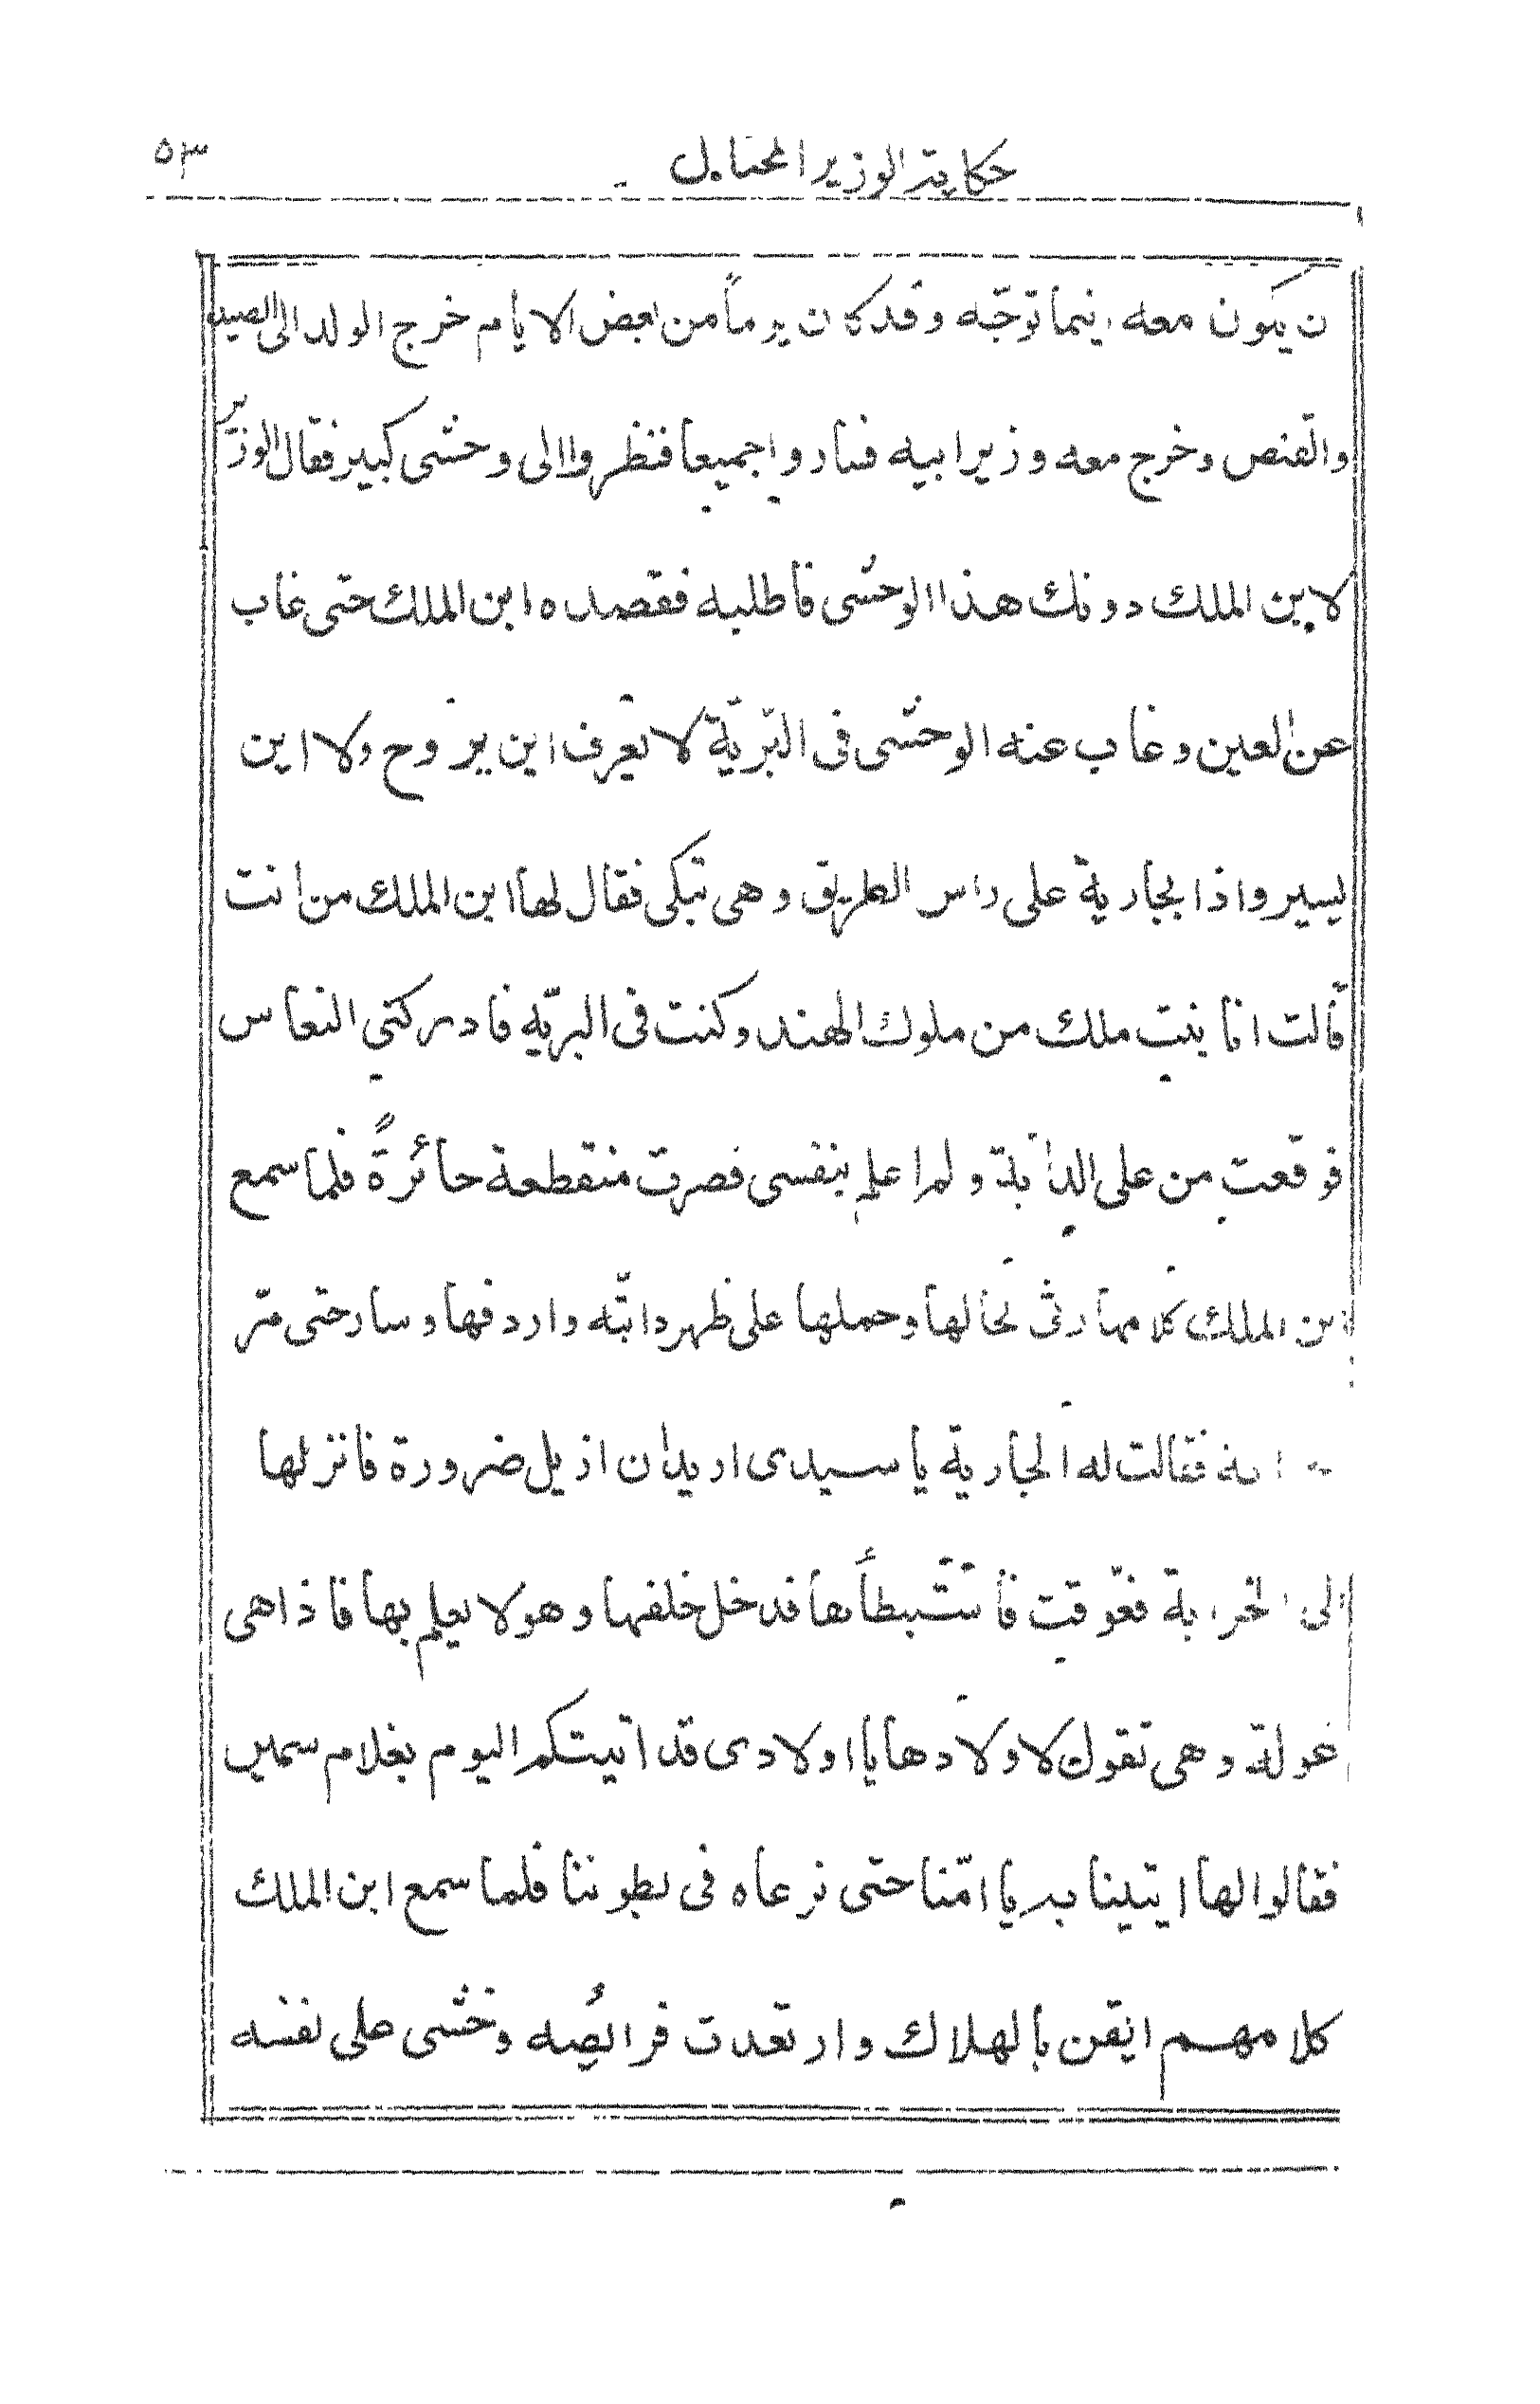 حكاية الوزير المحتال
٥٣
ن يكون معه اينما توجّه وقد كان يوماً من بعض الايام خرج الولد الى الصيد
والقنص وخرج معه وزير ابيه فساروا جميعا فنظروا الى وحش كبير فقال الوزير
لابن الملك دونك هذا الوحش فاطلبه فقصده ابن الملك حتى غاب
عن العين وغاب عنه الوحش فى البرّيّة لا يعرف اين يروح ولا اين
يسير واذا بجارية على راس الطريق وهى تبكى فقال لها ابن الملك من انت
قالت انا بنت ملك من ملوك الهند وكنت فى البريّه فادركنى النعاس
فوقعت من على الدابة ولم اعلم بنفسى فصرت منقطعة حائرةً فلما سمع
ابن الملك كلامها رثى لحالها وحملها على ظهر دابّته واردفها وسار حتى مرّ
فقالت له الجارية يا سيدى اريد ان ازيل ضرورة فانزلها
الى الخرابة فعوّقت فاستبطأها فدخل خلفها وهو لا يعلم بها فاذا هى
غولة وهى تقول لاولادها يا اولادى قد اتيتكم اليوم بغلام سمين
فقالوا لها ايتينا به يا امّنا حتى نرعاه فى بطوننا فلما سمع ابن الملك
كلامهم ايقن بالهلاك وارتعدت فرائصه وخشى على نفسه